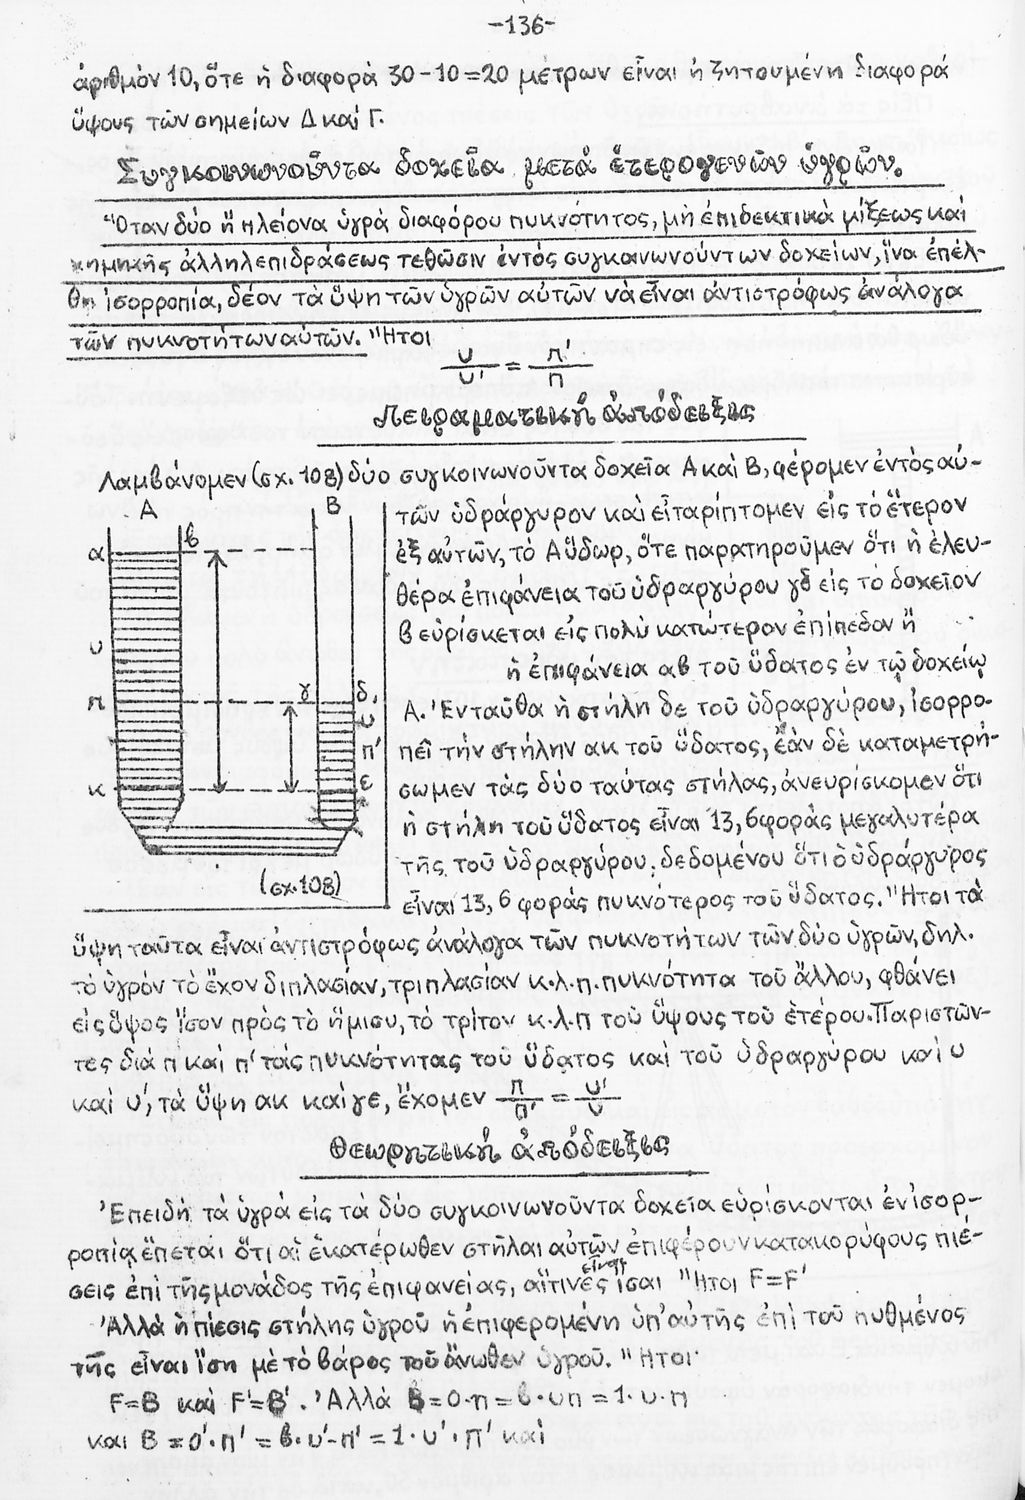 -136-
ἀριθμὸν 10, ὅτε ἡ διαφορὰ 30-10=20 μέτρων εἶναι ἡ ζητουμένη διαφορά
ὕψους τῶν σημείων Δ καὶ Γ.
Συγκοινωνοῦντα δοχεῖα μετὰ ἑτερογενῶν ὑγρῶν.
"Ὅταν δύο ἢ πλείονα ὑγρὰ διαφόρου πυκνότητος, μὴ ἐπιδεκτικὰ μίξεως καὶ
χημικῆς ἀλληλεπιδράσεως τεθῶσιν ἐντὸς συγκοινωνούντων δοχείων, ἵνα ἐπέλ-
θῃ ἰσορροπία, δέον τὰ ὕψη τῶν ὑγρῶν αὐτῶν νὰ εἶναι ἀντιστρόφως ἀνάλογα
τῶν πυκνοτήτων αὐτῶν. "Ητοι
υ/υ' = π'/π
Πειραματικὴ ἀπόδειξις
Λαμβάνομεν (σχ. 108) δύο συγκοινωνοῦντα δοχεῖα Α καὶ Β, φέρομεν ἐντὸς αὐ-
τῶν ὑδράργυρον καὶ εἶτα ρίπτομεν εἰς τὸ ἕτερον
ἐξ αὐτῶν, τὸ Α ὕδωρ, ὅτε παρατηροῦμεν ὅτι ἡ ἐλευ-
θέρα ἐπιφάνεια τοῦ ὑδραργύρου γδ εἰς τὸ δοχεῖον
β εὑρίσκεται εἰς πολὺ κατώτερον ἐπίπεδον ἢ
ἡ ἐπιφάνεια αβ τοῦ ὕδατος ἐν τῷ δοχείῳ
Α. Ἐνταῦθα ἡ στήλη δε τοῦ ὑδραργύρου, ἰσορρο-
πεῖ τὴν στήλην ακ τοῦ ὕδατος, ἐὰν δὲ καταμετρή-
σωμεν τὰς δύο ταύτας στήλας, ἀνευρίσκομεν ὅτι
ἡ στήλη τοῦ ὕδατος εἶναι 13,6 φορὰς μεγαλυτέρα
τῆς τοῦ ὑδραργύρου, δεδομένου ὅτι ὁ ὑδράργυρος
εἶναι 13,6 φορὰς πυκνότερος τοῦ ὕδατος. "Ητοι τὰ
Α
Β
α
β
υ
π
γ
δ,
υ'
π'
κ
ε
(σχ. 108)
ὕψη ταῦτα εἶναι ἀντιστρόφως ἀνάλογα τῶν πυκνοτήτων τῶν δύο ὑγρῶν, δηλ.
τὸ ὑγρὸν τὸ ἔχον διπλασίαν, τριπλασίαν κ.λ.π. πυκνότητα τοῦ ἄλλου, φθάνει
εἰς ὕψος ἴσον πρὸς τὸ ἥμισυ, τὸ τρίτον κ.λ.π τοῦ ὕψους τοῦ ἑτέρου. Παριστῶν-
τες διὰ π καὶ π' τὰς πυκνότητας τοῦ ὕδατος καὶ τοῦ ὑδραργύρου καὶ υ
καὶ υ', τὰ ὕψη ακ καὶ γε, ἔχομεν π/π' = υ'/υ
Θεωρητικὴ ἀπόδειξις
Ἐπειδὴ τὰ ὑγρὰ εἰς τὰ δύο συγκοινωνοῦντα δοχεῖα εὑρίσκονται ἐν ἰσορ-
ροπίᾳ ἕπεται ὅτι αἱ ἑκατέρωθεν στῆλαι αὐτῶν ἐπιφέρουν κατακορύφους πιέ-
σεις ἐπὶ τῆς μονάδος τῆς ἐπιφανείας, αἵτινες εἶναι ἴσαι "Ητοι F=F'
Ἀλλὰ ἡ πίεσις στήλης ὑγροῦ ἡ ἐπιφερομένη ὑπ' αὐτῆς ἐπὶ τοῦ πυθμένος
τῆς εἶναι ἴση μὲ τὸ βάρος τοῦ ἄνωθεν ὑγροῦ. "Ητοι
F=Β καὶ F'=Β'. Ἀλλὰ Β=Ο·π = β·υπ = 1·υ·π
καὶ Β=Ο'·π' = β·υ'-π' = 1·υ'·π' καὶ